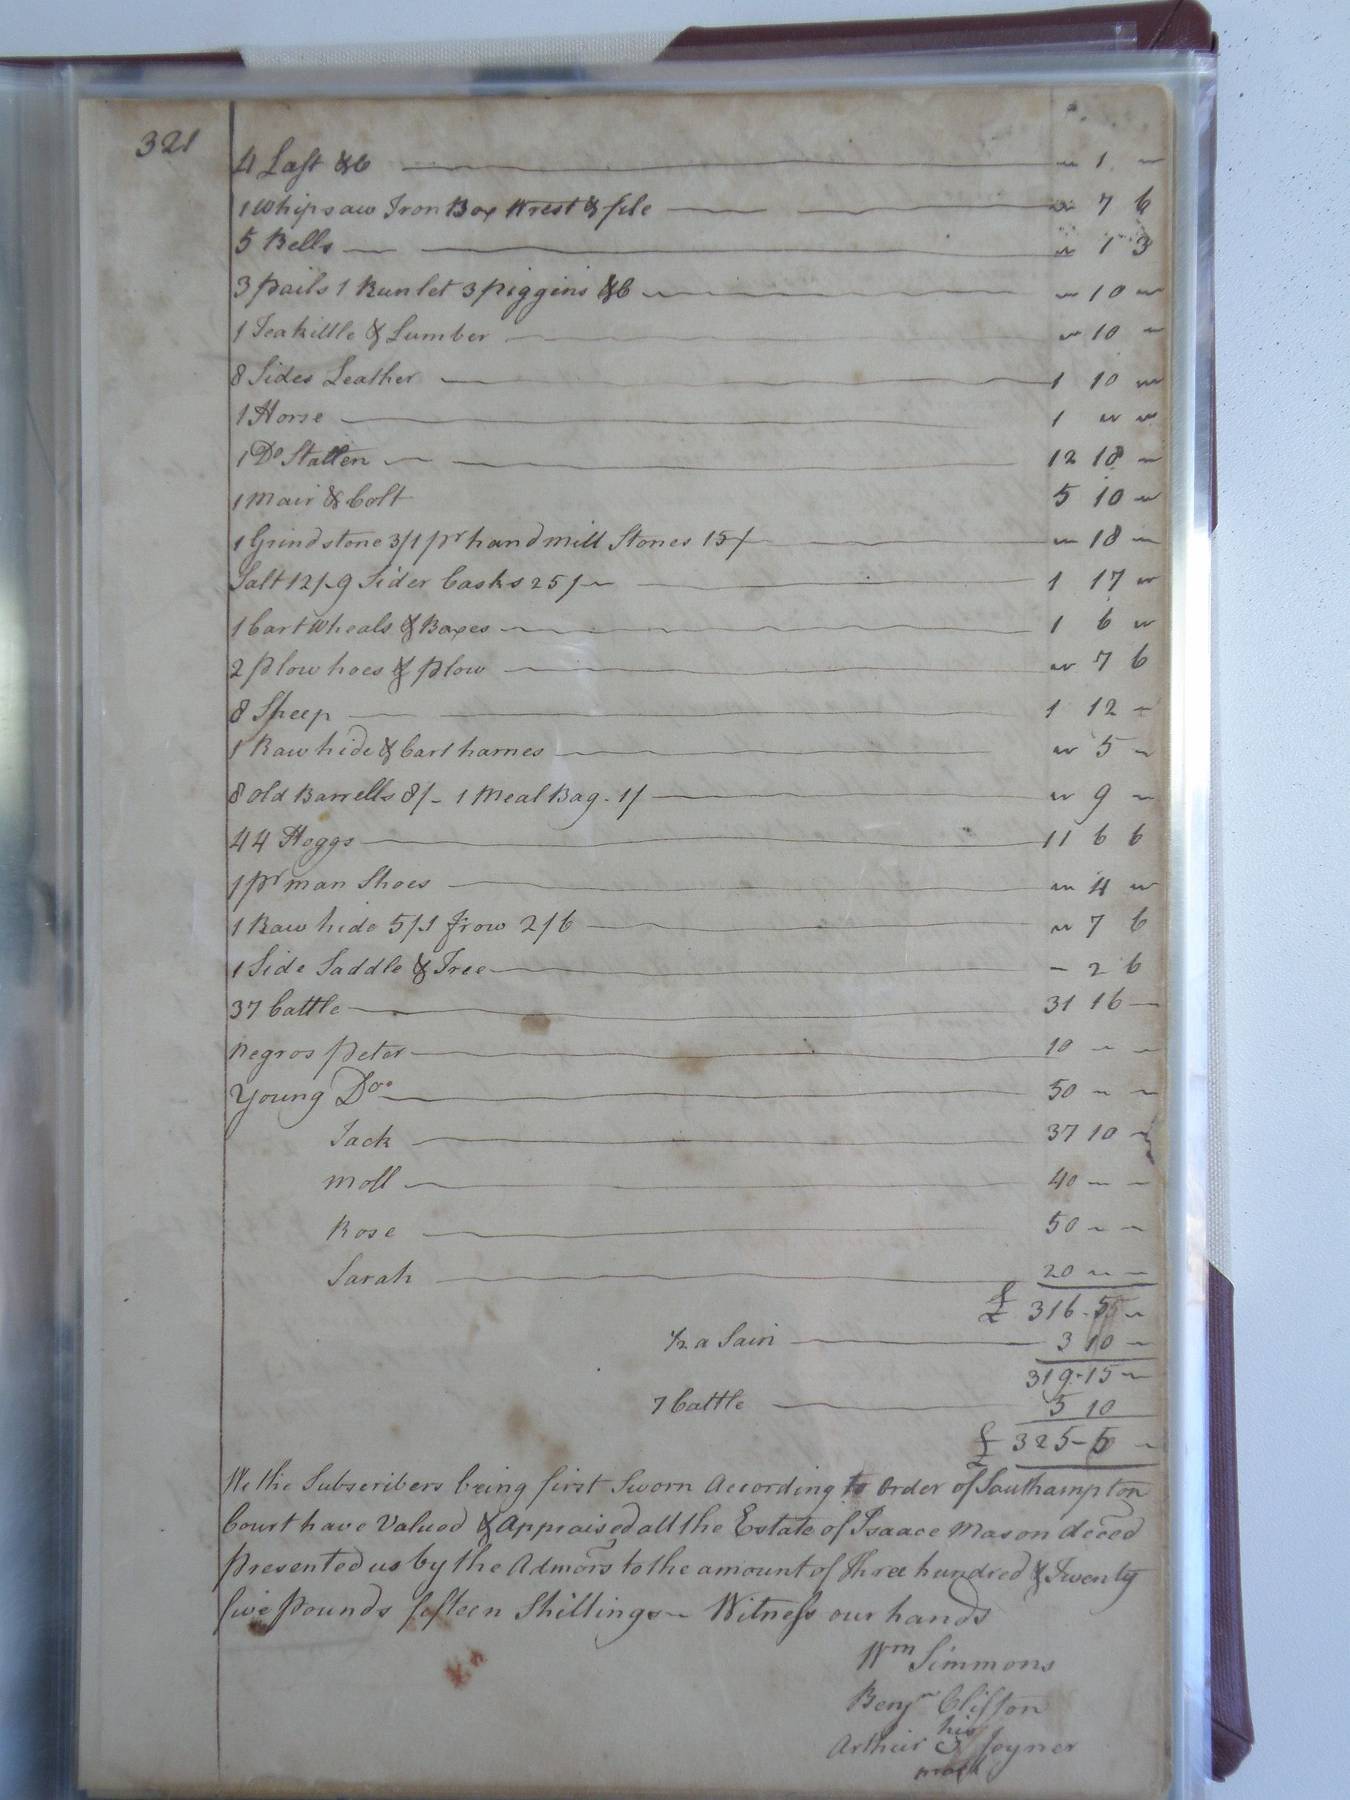 321
4 Last &c — " 1 "
1 Whipsaw Iron Box Wrest & file — " 7 6
5 Bells — " 1 3
3 pails 1 Runlet 3 piggins &c — " 10 "
1 Teakittle & Lumber — " 10 "
8 Sides Leather — 1 10 "
1 Horse — 1 " "
1 Do Stallen — 12 18 "
1 mair & Colt 5 10 "
1 Grindstone 3/ 1 pr hand mill Stones 15/ — " 18 "
Salt 12/ 9 Sider Casks 25/ — 1 17 "
1 Cart Wheals & Boxes — 1 6 "
2 plow hoes & plow — " 7 6
8 Sheep — 1 12 "
1 Raw hide & Cart harnes — " 5 "
8 old Barrells 8/- 1 Meal Bag - 1/ — " 9 "
44 Hoggs — 11 6 6
1 pr man Shoes — " 4 "
1 Raw hide 5/ 1 frow 2/6 — " 7 6
1 Side Saddle & Tree — - 2 6
37 Cattle — 31 16 —
negros peter — 10 " "
Young Do — 50 " "
Jack — 37 10 "
moll — 40 " "
Rose — 50 " "
Sarah — 20 " "
£ 316 - 5 "
— 3 10 "
319 - 15 "
7 Cattle — 5 10
£ 325 - 5 "
We the Subscribers being first Sworn According to Order of Southampton
Court have Valued & Appraised all the Estate of Isaace Mason deced
presented us by the Admors to the amount of Three hundred & Twenty
five pounds fifteen Shillings — Witness our hands
Wm Simmons
Benjn Clifton
his
Arthur Joyner
mark